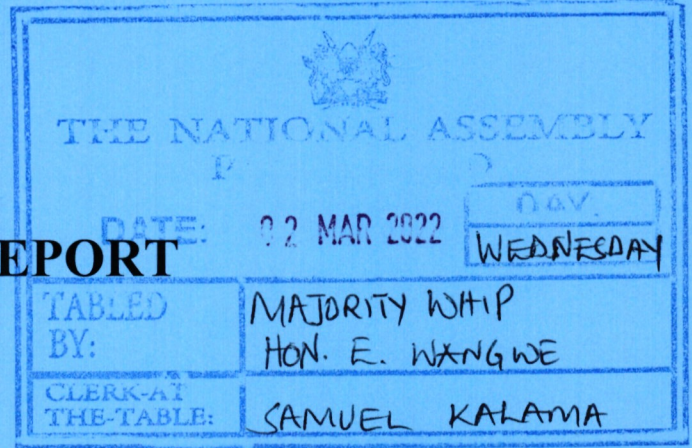 THE NATIONAL ASSEMBLY
DATE: 02 MAR 2022
DAY.
WEDNESDAY
EPORT
TABLED BY:
MAJORITY WHIP
HON. E. WANGWE
CLERK-AT THE-TABLE:
SAMUEL KALAMA